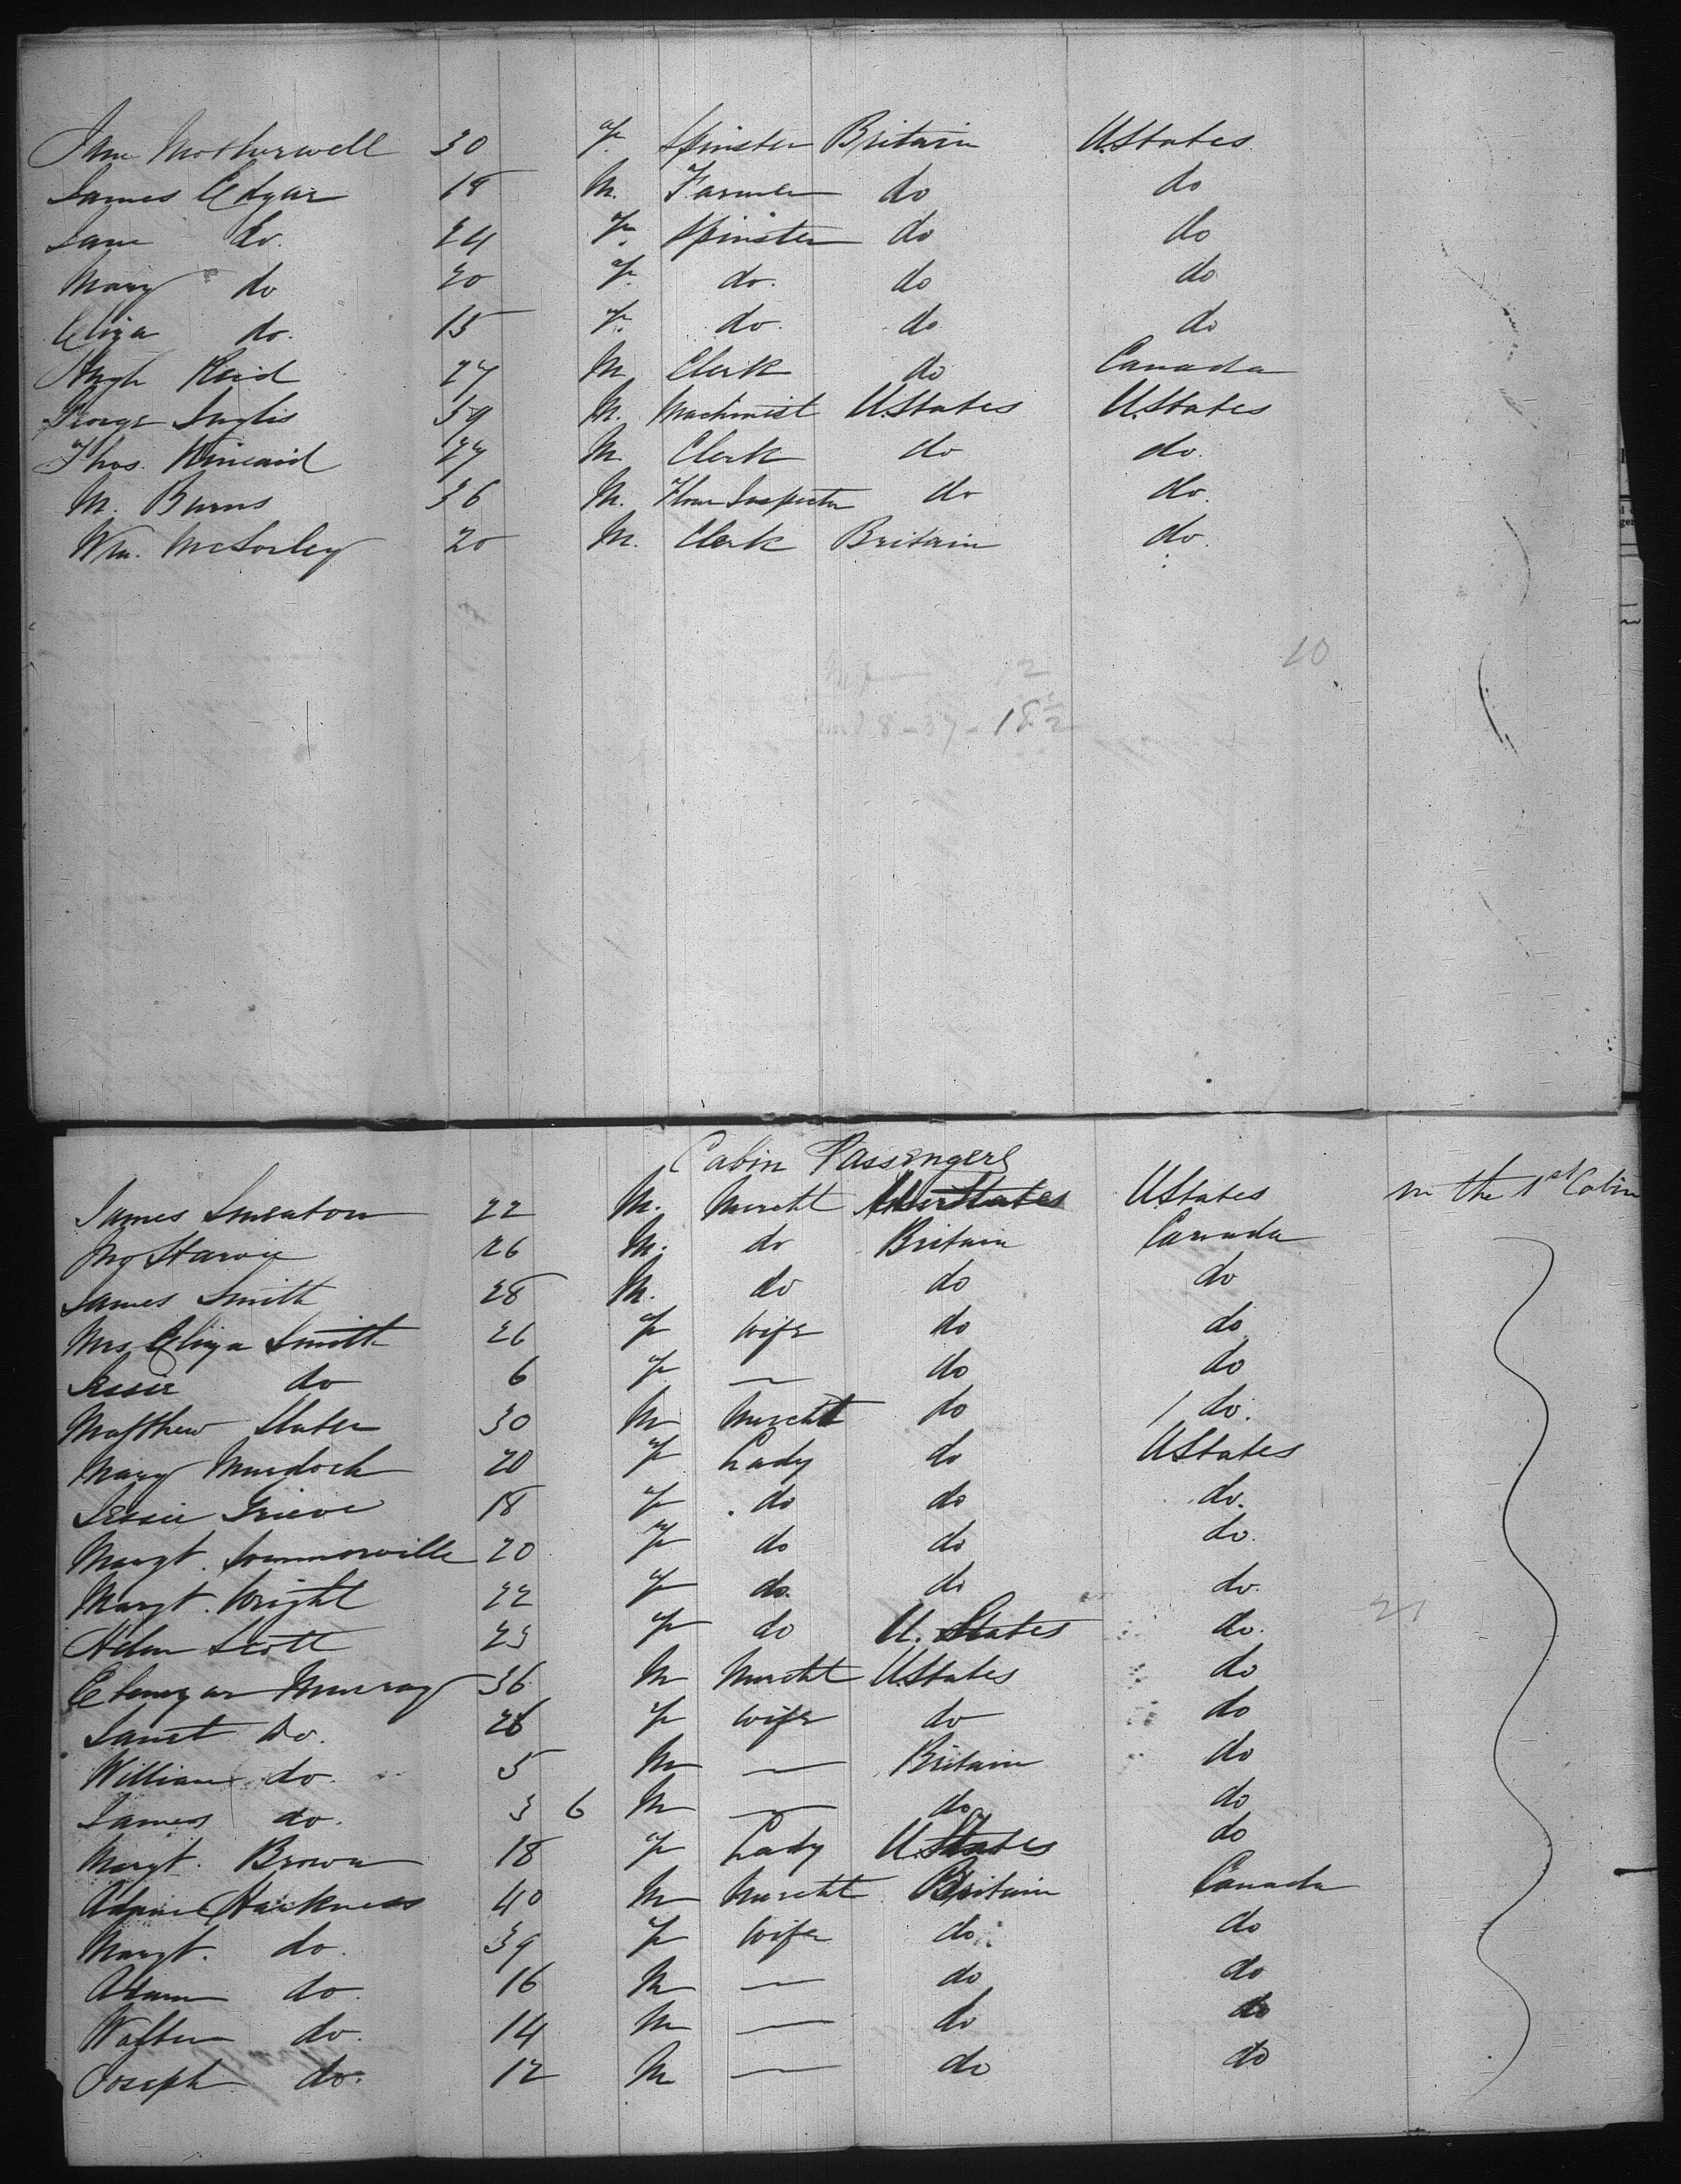 Jane Motherwell 30 F. Spinster Britain U.States
James Edgar 18 M. Farmer do do
Jane do. 24 F. Spinster do do
Mary do 20 F. do. do do
Eliza do. 15 F. do. do do
Hugh Reid 27 M Clerk do Canada
George Inglis 39 M. Machinist U.States U.States
Thos. Kincaid 27 M. Clerk do do.
M. Burns 36 M. Flour Inspector do do.
Wm. McSorley 20 M. Clerk Britain do.
10
12
18-37-18½
Cabin Passengers
James Smeaton 22 M. Mercht U.States in the 1st Cabin
Jno Starvie 26 M. do Britain Canada
James Smith 28 M. do do do
Mrs Eliza Smith 26 F wife do do
Jessie do 6 F — do do
Matthew Slater 30 M Mercht do / do.
Mary Murdoch 20 F Lady do U.States
Jessie Grieve 18 F do do do.
Margt. Sommerville 20 F do do do.
Margt. Wright 22 F do. do do.
21
Helen Scott 23 F do U. States do.
Ebenezar Murray 36 M Mercht U.States do
Janet Do. 26 F wife do do
William do. 5 M — Britain do
James do. 3 6 M — do do
Margt. Brown 18 F Lady U.States do
Harkness 40 M Mercht Britain Canada
Margt. do. 39 F wife do do
Adam do. 16 M — do do
Walter do. 14 M — do do
Joseph do. 12 M — do do